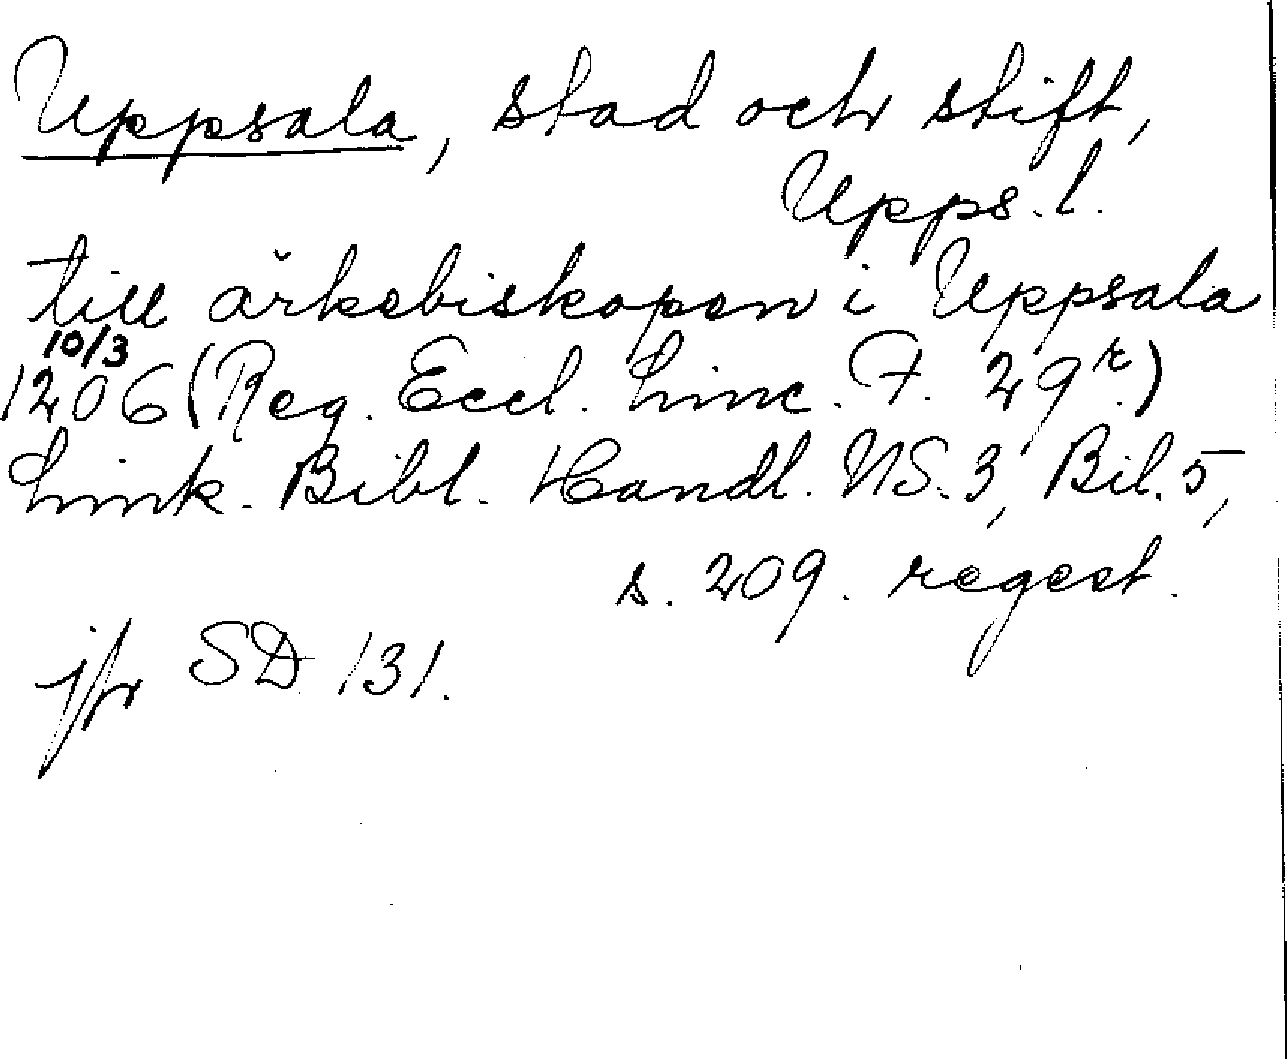 Uppsala, stad och stift,
Upps. l.
till ärkebiskopen i Uppsala
10/3
1206 (Reg. Eccl. Linc. F. 29r.)
Link. Bibl. Handl. NS. 3, Bil. 5,
s. 209. regest.
jfr SD 131.